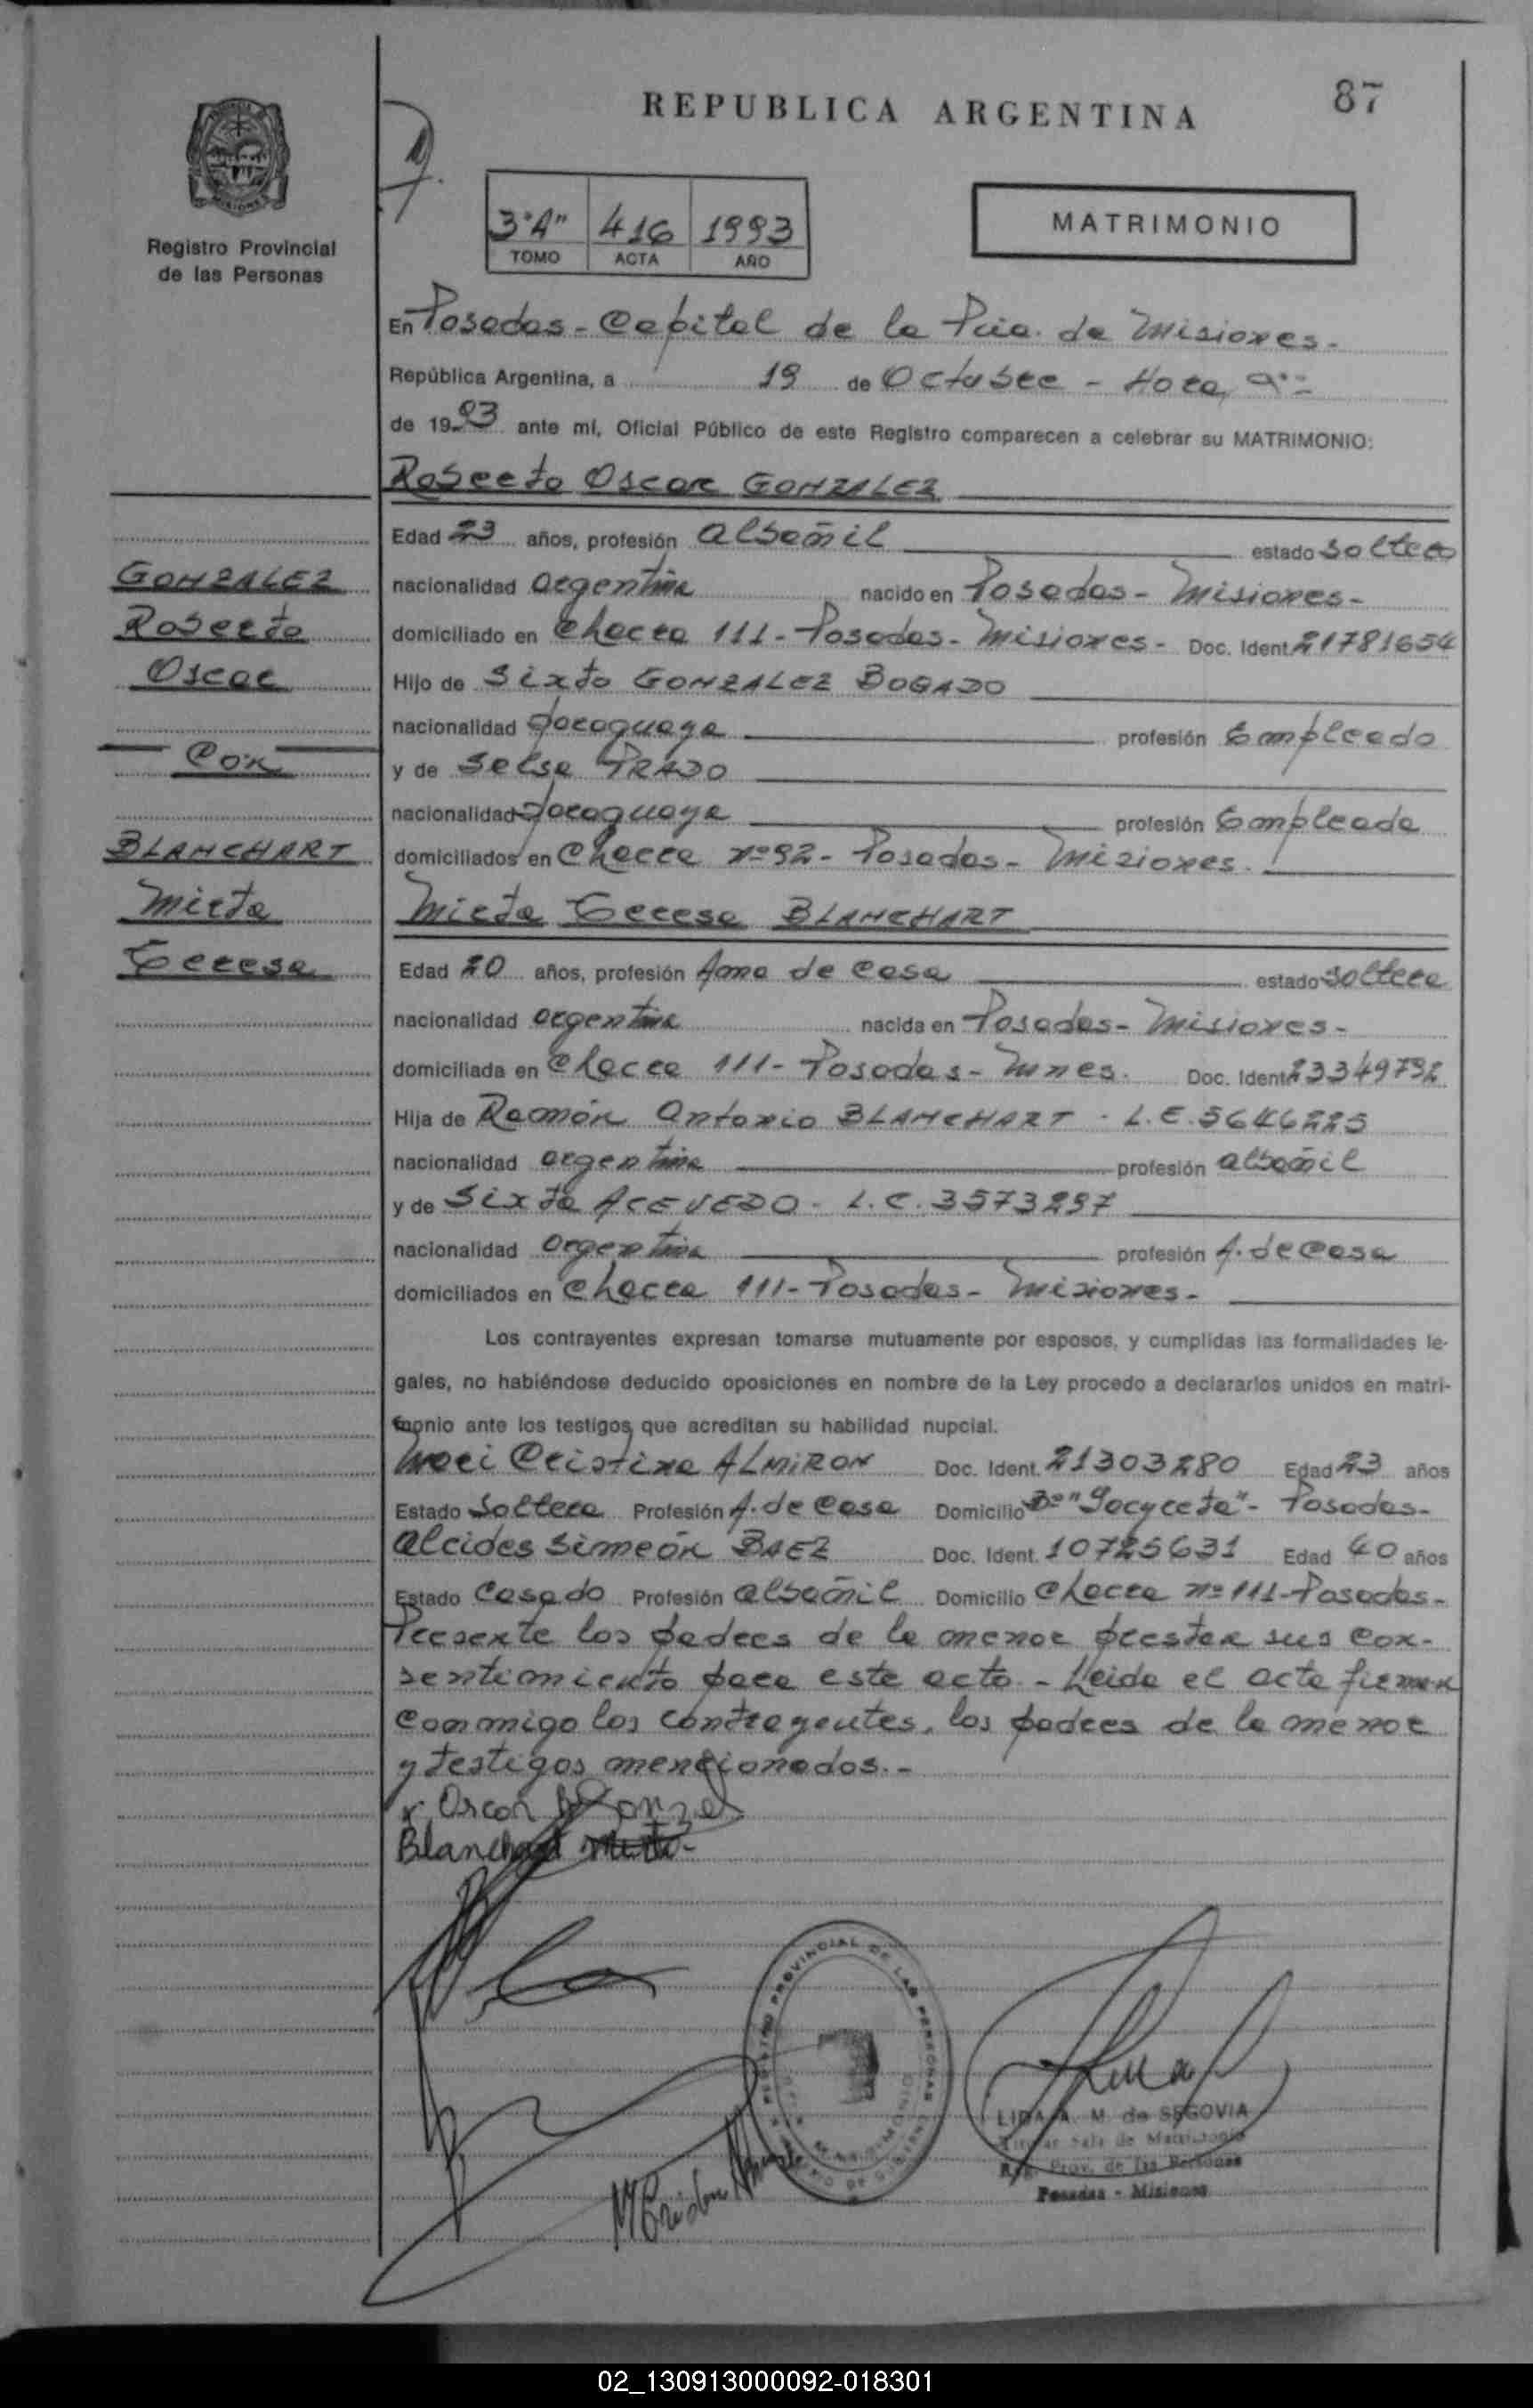 87
REPUBLICA ARGENTINA
Registro Provincial
de las Personas
3°"A" 416 1993
TOMO ACTA AÑO
MATRIMONIO
En Posadas - Capital de la Pcia. de Misiones.-
República Argentina, a 19 de Octubre - Hora, 9
de 1993 ante mí, Oficial Público de este Registro comparecen a celebrar su MATRIMONIO:
Roberto Oscar GONZALEZ
Edad 23 años, profesión albañil estado soltero
GONZALEZ
nacionalidad argentina nacido en Posadas - Misiones -
Roberto
domiciliado en Chacra 111 - Posadas - Misiones - Doc. Ident. 21781654
Oscar
Hijo de Sixto GONZALEZ BOGADO
nacionalidad paraguaya profesión Empleado
Con
y de Selsa PRADO
nacionalidad paraguaya profesión Empleada
BLANCHART
domiciliados en Chacra nº 92 - Posadas - Misiones.
Mirta
Mirta Teresa BLANCHART
Teresa
Edad 20 años, profesión Ama de casa estado soltera
nacionalidad argentina nacida en Posadas - Misiones -
domiciliada en Chacra 111 - Posadas - Mnes. Doc. Ident. 23349792
Hija de Ramón Antonio BLANCHART - L.E. 5646225
nacionalidad argentina profesión albañil
y de Sixta ACEVEDO - L.C. 3573297
nacionalidad argentina profesión A. de Casa
domiciliados en Chacra 111 - Posadas - Misiones -
Los contrayentes expresan tomarse mutuamente por esposos, y cumplidas las formalidades le-
gales, no habiéndose deducido oposiciones en nombre de la Ley procedo a declararlos unidos en matri-
monio ante los testigos que acreditan su habilidad nupcial.
Cristina ALMIRON Doc. Ident. 21303280 Edad 23 años
Estado Soltera Profesión A. de Casa Domicilio Bº "Yacyreta" - Posadas -
Alcides Simeón BAEZ Doc. Ident. 10725631 Edad 40 años
Estado Casado Profesión albañil Domicilio Chacra nº 111 - Posadas -
Presente los padres de la menor prestan sus con-
sentimiento para este acto - Leida el acta firman
conmigo los contrayentes, los padres de la menor
y testigos mencionados.-
Oscar Gonzalez
Blanchart
REGISTRO PROVINCIAL DE LAS PERSONAS
LIDA A. M. de SEGOVIA
Sala de Matrimonio
Reg. Prov. de las Personas
Posadas - Misiones
02_130913000092-018301